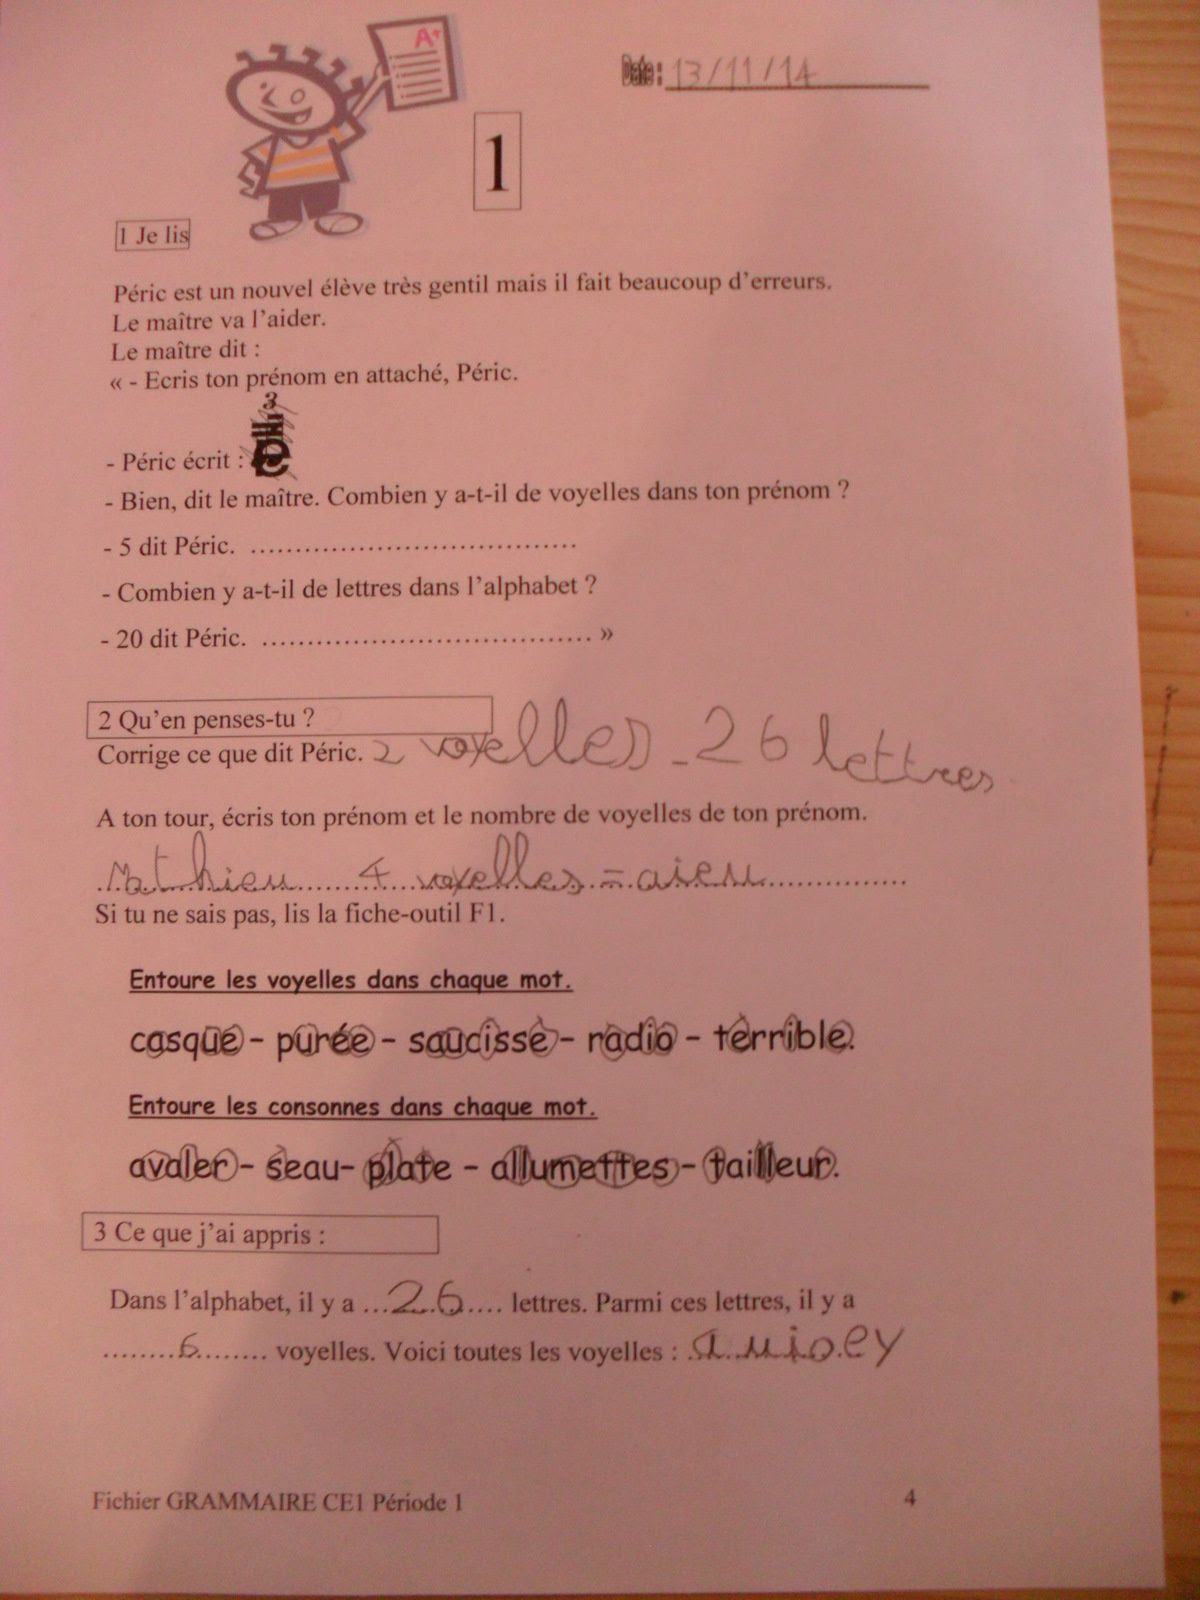 A+
Date : 13/11/14
1
1 Je lis
Péric est un nouvel élève très gentil mais il fait beaucoup d'erreurs.
Le maître va l'aider.
Le maître dit :
« - Ecris ton prénom en attaché, Péric.
- Péric écrit :
- Bien, dit le maître. Combien y a-t-il de voyelles dans ton prénom ?
- 5 dit Péric. ....................................
- Combien y a-t-il de lettres dans l'alphabet ?
- 20 dit Péric. .................................... »
2 Qu'en penses-tu ?
Corrige ce que dit Péric. 2 voyelles - 26 lettres
A ton tour, écris ton prénom et le nombre de voyelles de ton prénom.
Mathieu 4 voyelles = aieu
Si tu ne sais pas, lis la fiche-outil F1.
Entoure les voyelles dans chaque mot.
casque - purée - saucisse - radio - terrible.
Entoure les consonnes dans chaque mot.
avaler - seau- plate - allumettes - tailleur.
3 Ce que j'ai appris :
Dans l'alphabet, il y a ...26.... lettres. Parmi ces lettres, il y a
........6........ voyelles. Voici toutes les voyelles : auioey
Fichier GRAMMAIRE CE1 Période 1 4